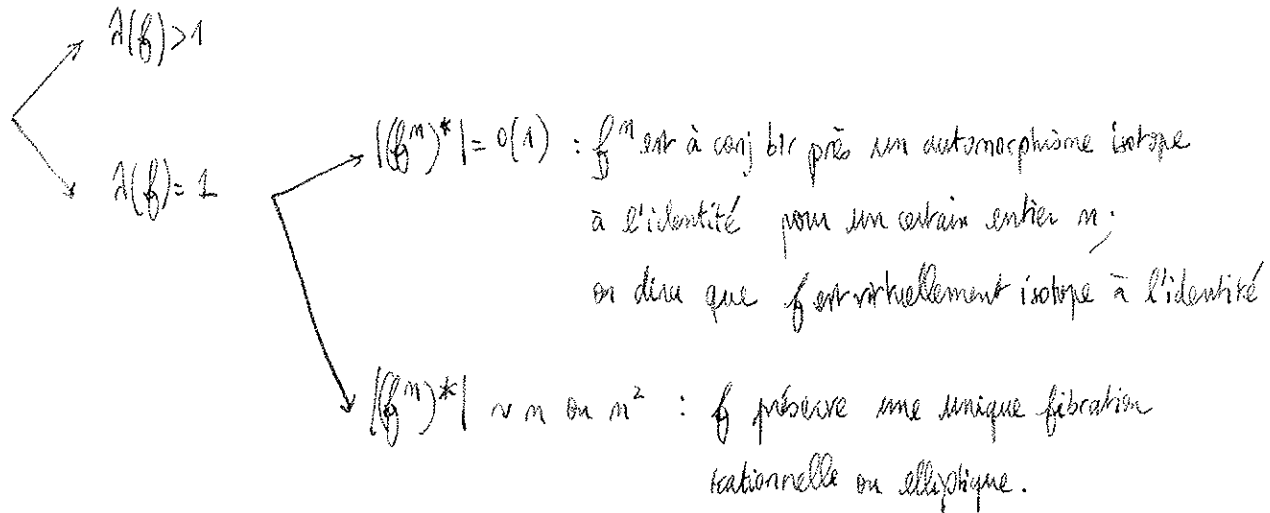 λ(f)>1
|(fⁿ)*| = O(1) : fⁿ est à conj bir près un automorphisme isotope
λ(f)=1
à l'identité pour un certain entier n;
on dira que f est virtuellement isotope à l'identité
|(fⁿ)*| ~ n ou n² : f préserve une unique fibration
rationnelle ou elliptique.